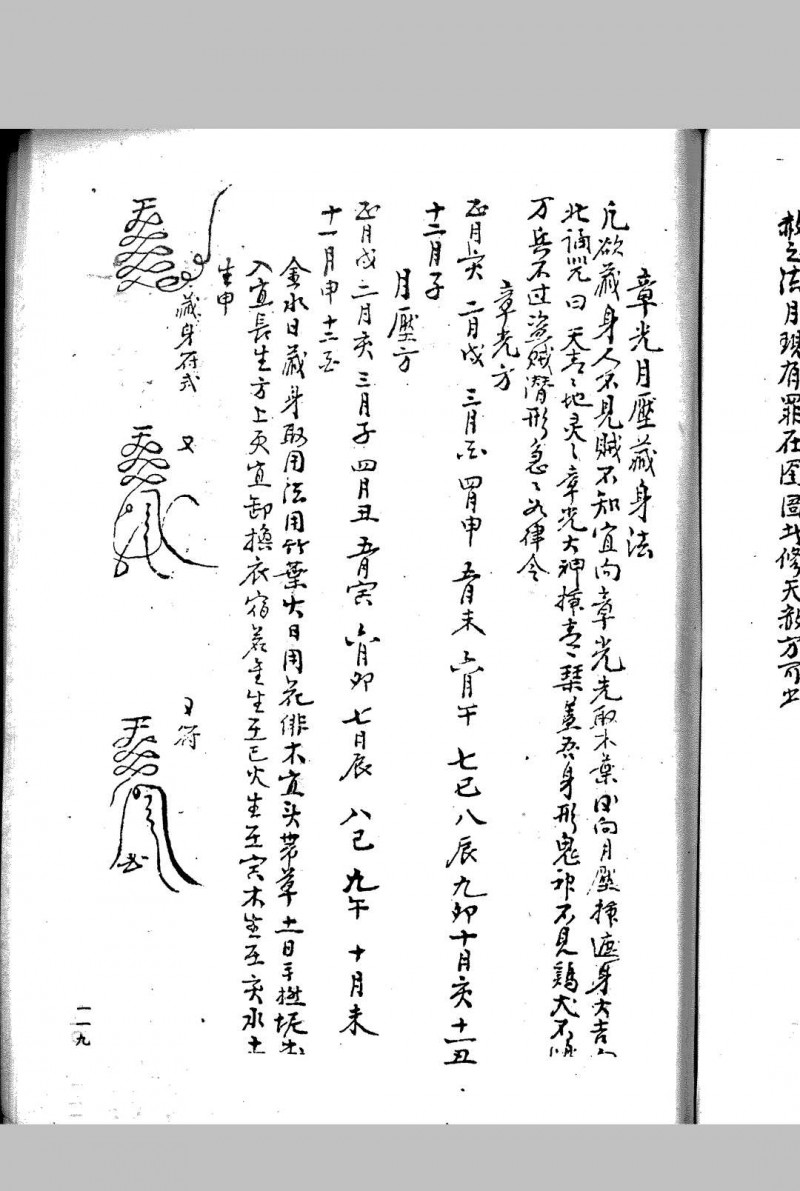 赦之法月現有罪在囹圄此修天赦方可出
章光月壓藏身法
凡欲藏身人不見賊不知宜向章光先取木葉回向月壓揷遮身大吉
北誦咒曰天青〻地灵〻章光大神揷青〻葉蓋吾身形鬼神不見鷄犬不
万兵不过盜賊潛形急〻如律令
章光方
正月亥 二月戌 三月酉 四月申 五月未 六月午 七巳八辰九卯十月亥十一丑
十二月子
月壓方
正月戌二月亥三月子四月丑五月寅六月卯七月辰八巳九午十月未
十一月申十二酉
金水日藏身取用法用竹葉火日用花俳木宜头带草土日手揪坭出
入宜長生方上更宜卸換衣宿若金生在巳火生在寅木生在亥水土
生申
藏身符式
又
又符
一一九